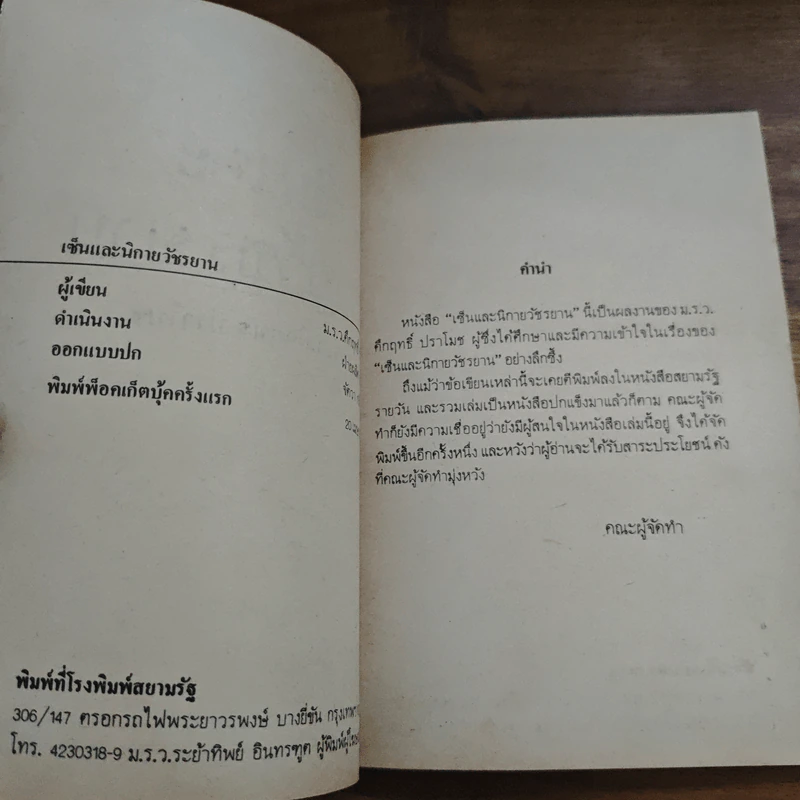 เซ็นและนิกายวัชรยาน
ผู้เขียน
ม.ร.ว.คึกฤทธิ์
ดำเนินงาน
ออกแบบปก
พิมพ์พ็อคเก็ตบุ้คครั้งแรก
20
พิมพ์ที่โรงพิมพ์สยามรัฐ
306/147 ตรอกรถไฟพระยาวรพงษ์ บางยี่ขัน กรุงเทพ
โทร. 4230318-9 ม.ร.ว.ระย้าทิพย์ อินทรฑูต ผู้พิมพ์ผู้
คำนำ
หนังสือ “เซ็นและนิกายวัชรยาน” นี้เป็นผลงานของ ม.ร.ว.
คึกฤทธิ์ ปราโมช ผู้ซึ่งได้ศึกษาและมีความเข้าใจในเรื่องของ
“เซ็นและนิกายวัชรยาน” อย่างลึกซึ้ง
ถึงแม้ว่าข้อเขียนเหล่านี้จะเคยตีพิมพ์ลงในหนังสือสยามรัฐ
รายวัน และรวมเล่มเป็นหนังสือปกแข็งมาแล้วก็ตาม คณะผู้จัด
ทำก็ยังมีความเชื่ออยู่ว่ายังมีผู้สนใจในหนังสือเล่มนี้อยู่ จึงได้จัด
พิมพ์ขึ้นอีกครั้งหนึ่ง และหวังว่าผู้อ่านจะได้รับสาระประโยชน์ ดัง
ที่คณะผู้จัดทำมุ่งหวัง
คณะผู้จัดทำ